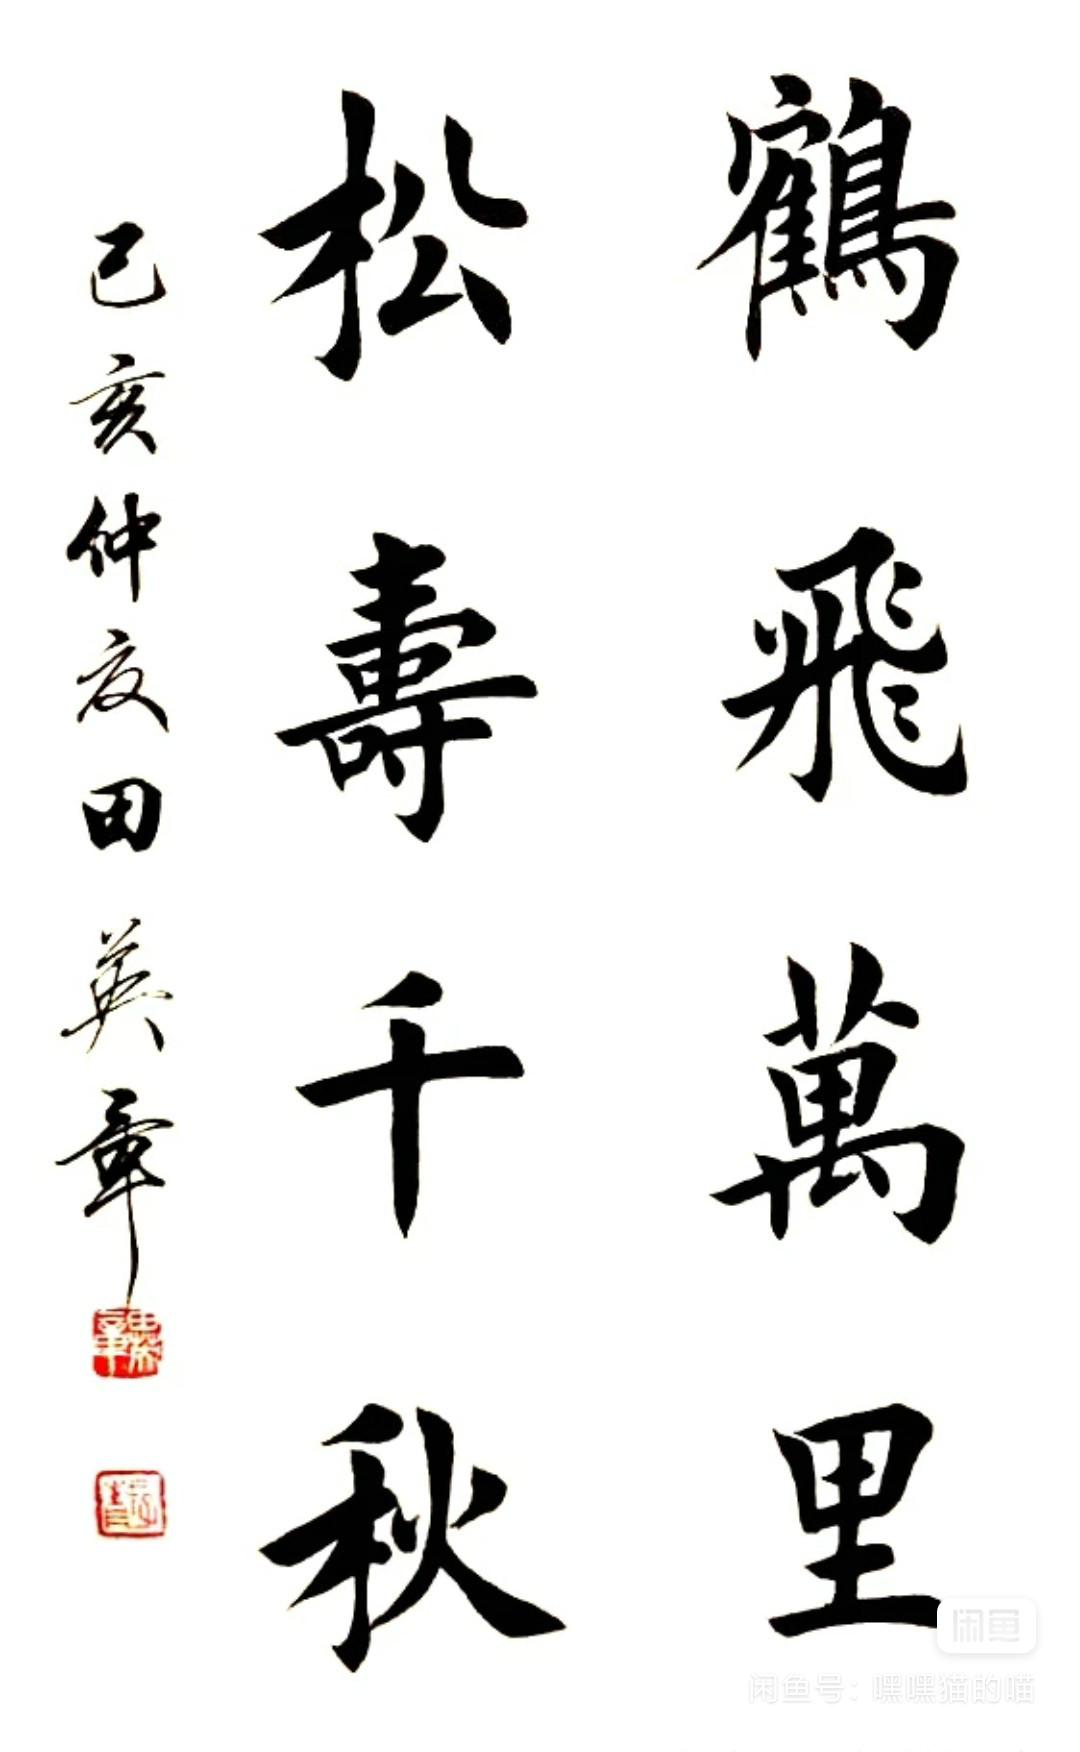 鶴飛萬里
松壽千秋
己亥仲夏田英章
闲鱼
闲鱼号：嘿嘿猫的喵